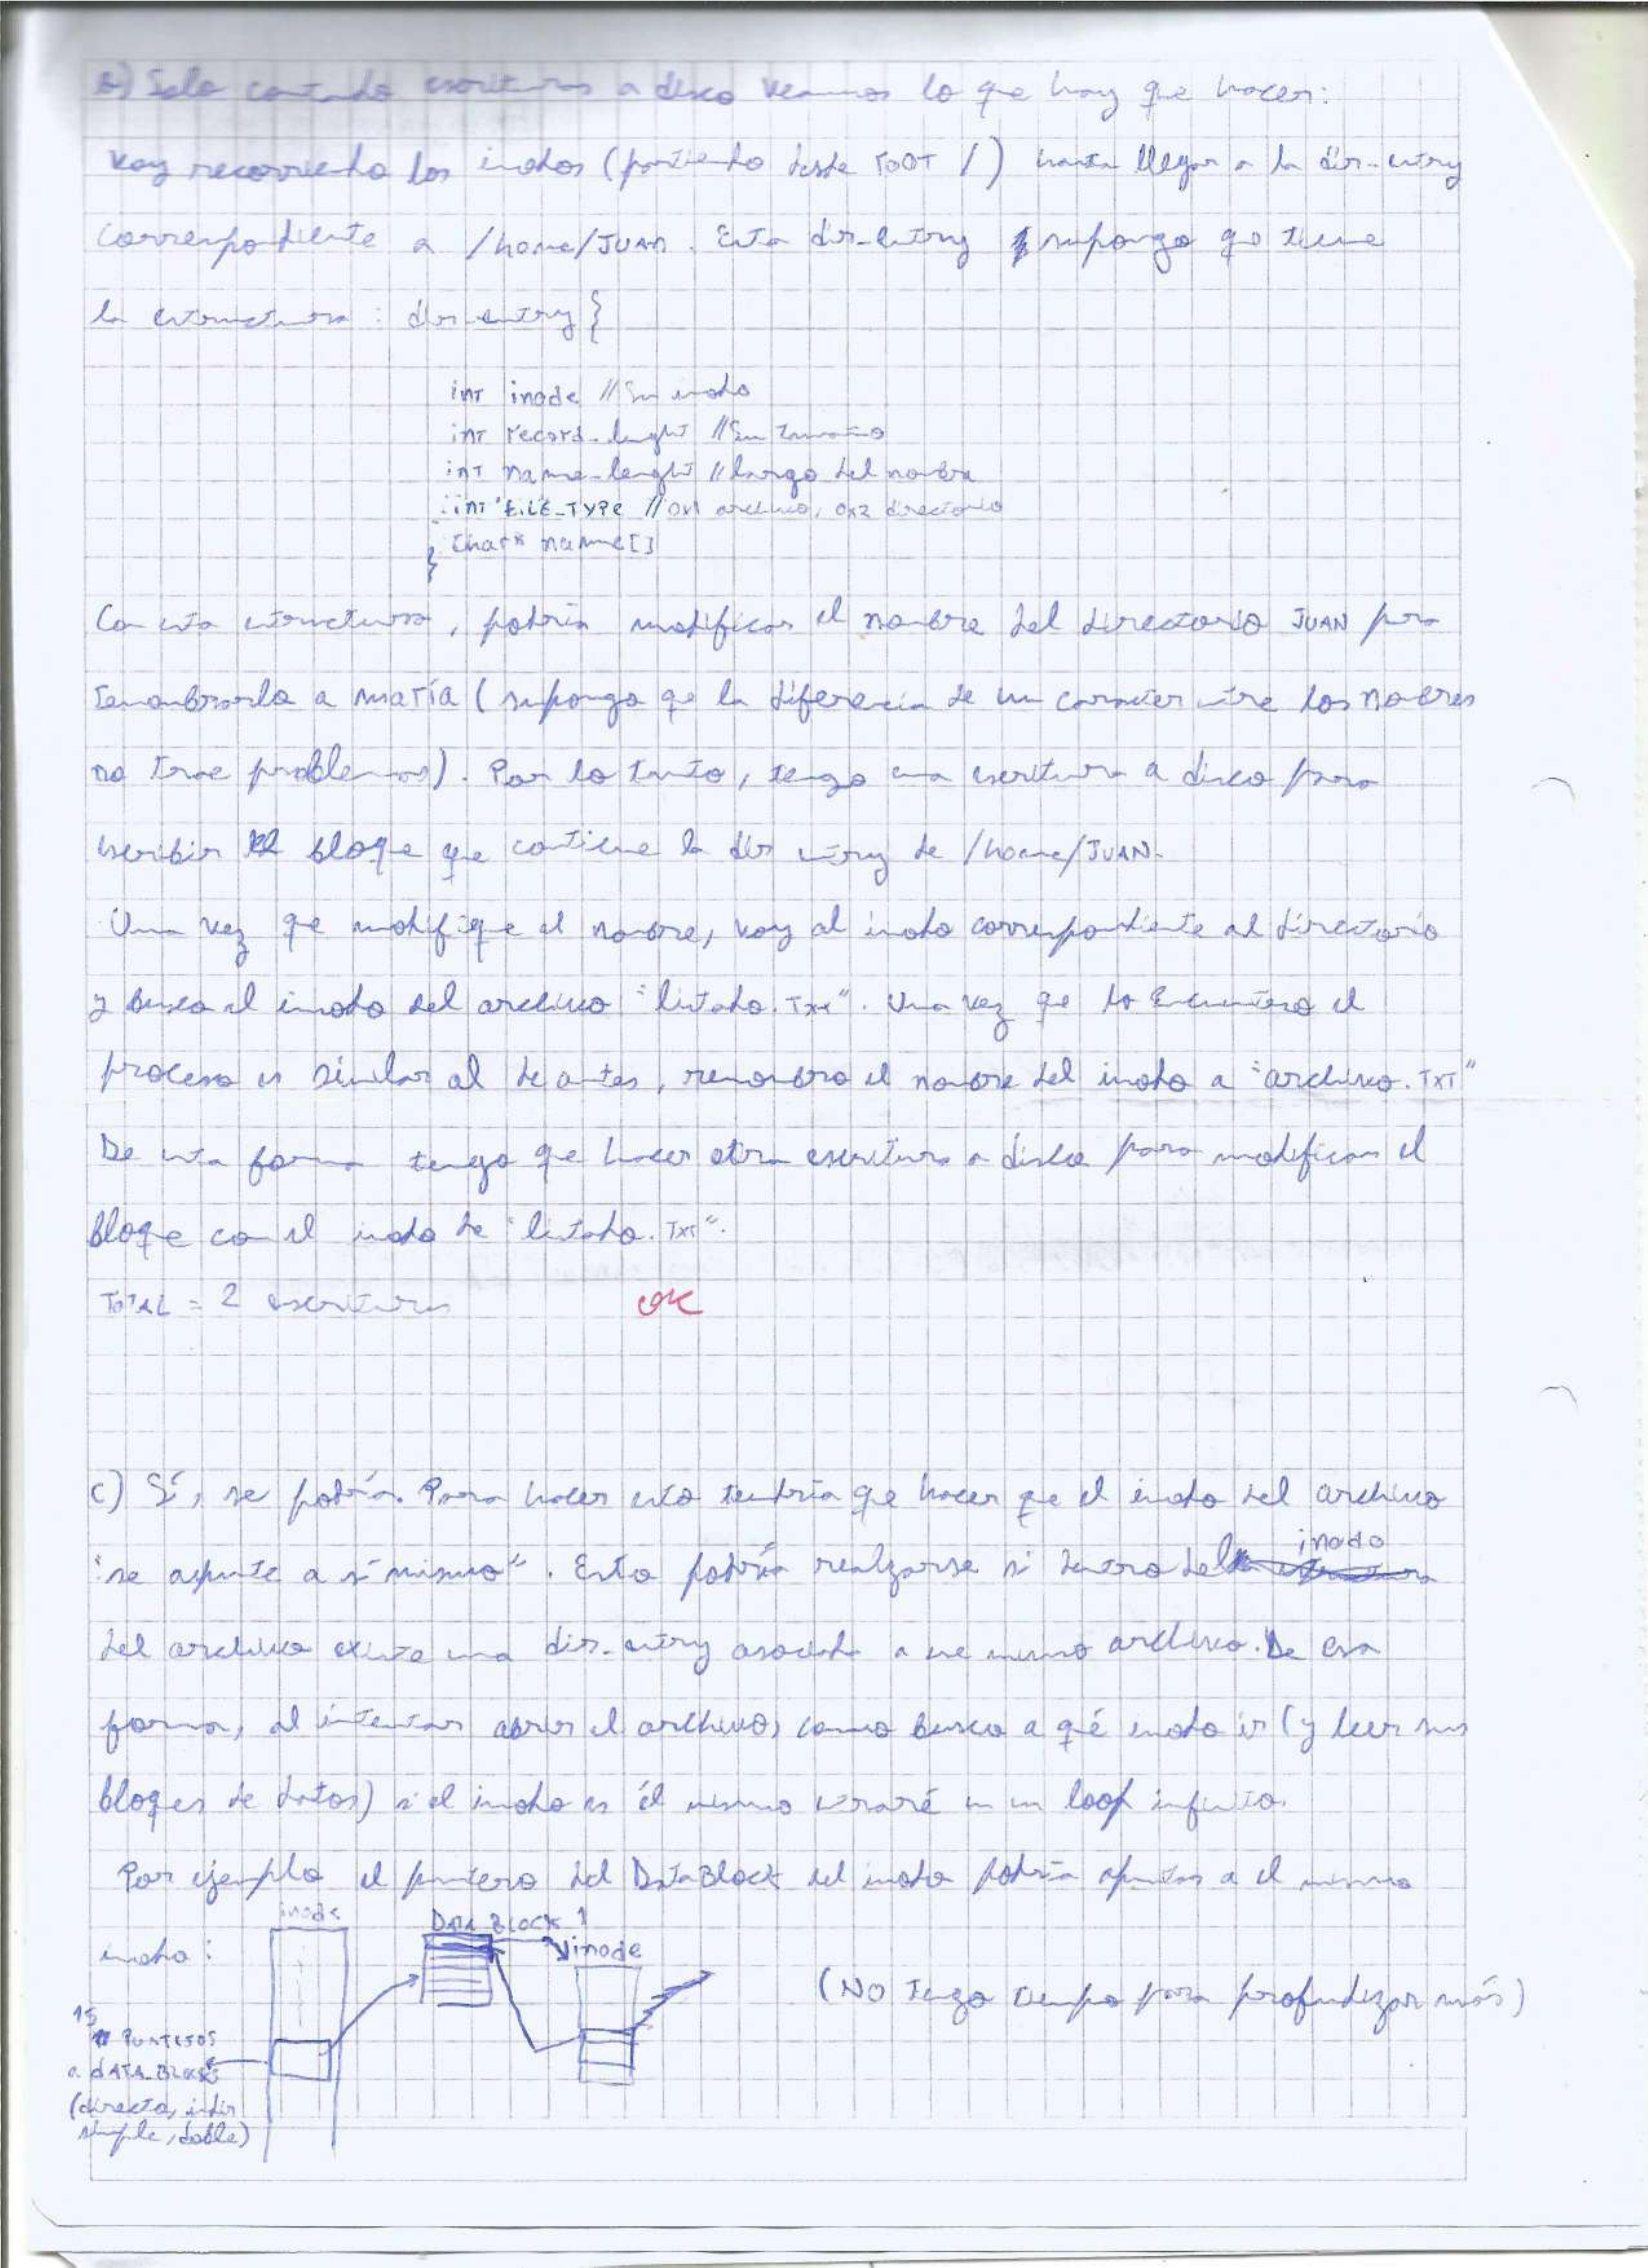 b) Solo contando escrituras a disco veamos lo que hay que hacer:
Voy recorriendo los inodos (partiendo desde root /) hasta llegar a la dir_entry
correspondiente a /home/JUAN. Esta dir_entry supongo qe tiene
la estructura: dir_entry {
int inode // Su inodo
int record_lenght // Su tamaño
int name_lenght // largo del nombre
int FILE_TYPE // 0x1 archivo, 0x2 directorio
char* name[]
}
Con esta estructura, podría modificar el nombre del directorio JUAN para
renombrarlo a María (supongo qe la diferencia de un caracter entre los nombres
no trae problemas). Por lo tanto, tengo una escritura a disco para
escribir el bloqe qe contiene la dir entry de /home/JUAN.
Una vez qe modifiqe el nombre, voy al inodo correspondiente al directorio
y busco el inodo del archivo "listado.txt". Una vez qe lo encuentro el
proceso es similar al de antes, renombro el nombre del inodo a "archivo.TXT"
De esta forma tengo qe hacer otra escritura a disco para modificar el
bloqe con el inodo de "listado.TXT".
TOTAL = 2 escrituras OK
c) Sí, se podría. Para hacer esto tendría qe hacer qe el inodo del archivo
"se apunte a sí mismo". Esto podría realizarse si dentro del inodo
del archivo existe una dir_entry asociada a ese mismo archivo. De esa
forma, al intentar abrir el archivo, como busco a qué inodo ir (y leer sus
bloqes de datos) si el inodo es él mismo entraré en un loop infinito.
Por ejemplo el puntero del DataBlock del inodo podría apuntar a el mismo
inodo:
inode
DATA BLOCK 1
inode
15 PUNTEROS
a DATA_BLOCKS
(directo, indir
simple, doble)
(NO tengo tiempo para profundizar más)